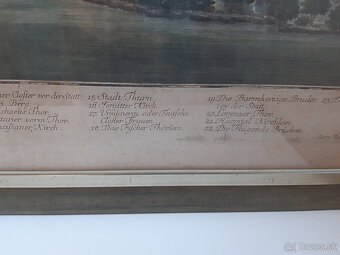 ner Closter vor der Statt.
Berg
Michaelis Thor.
vorm Thor.
Franciscaner Kirch.
15. Stadt Thurn
16. Jesuiter Kirch.
17. Ursulinerin oder Teutsche
Closter Frauen
18. Das Fischer Thörlein.
19. Die Barmhertzige Bruder
vor der Statt.
20. Lorenzer Thor.
21. Hospital Kirchlein.
22. Die Fliegende Brücken.
23. T
bazos.sk